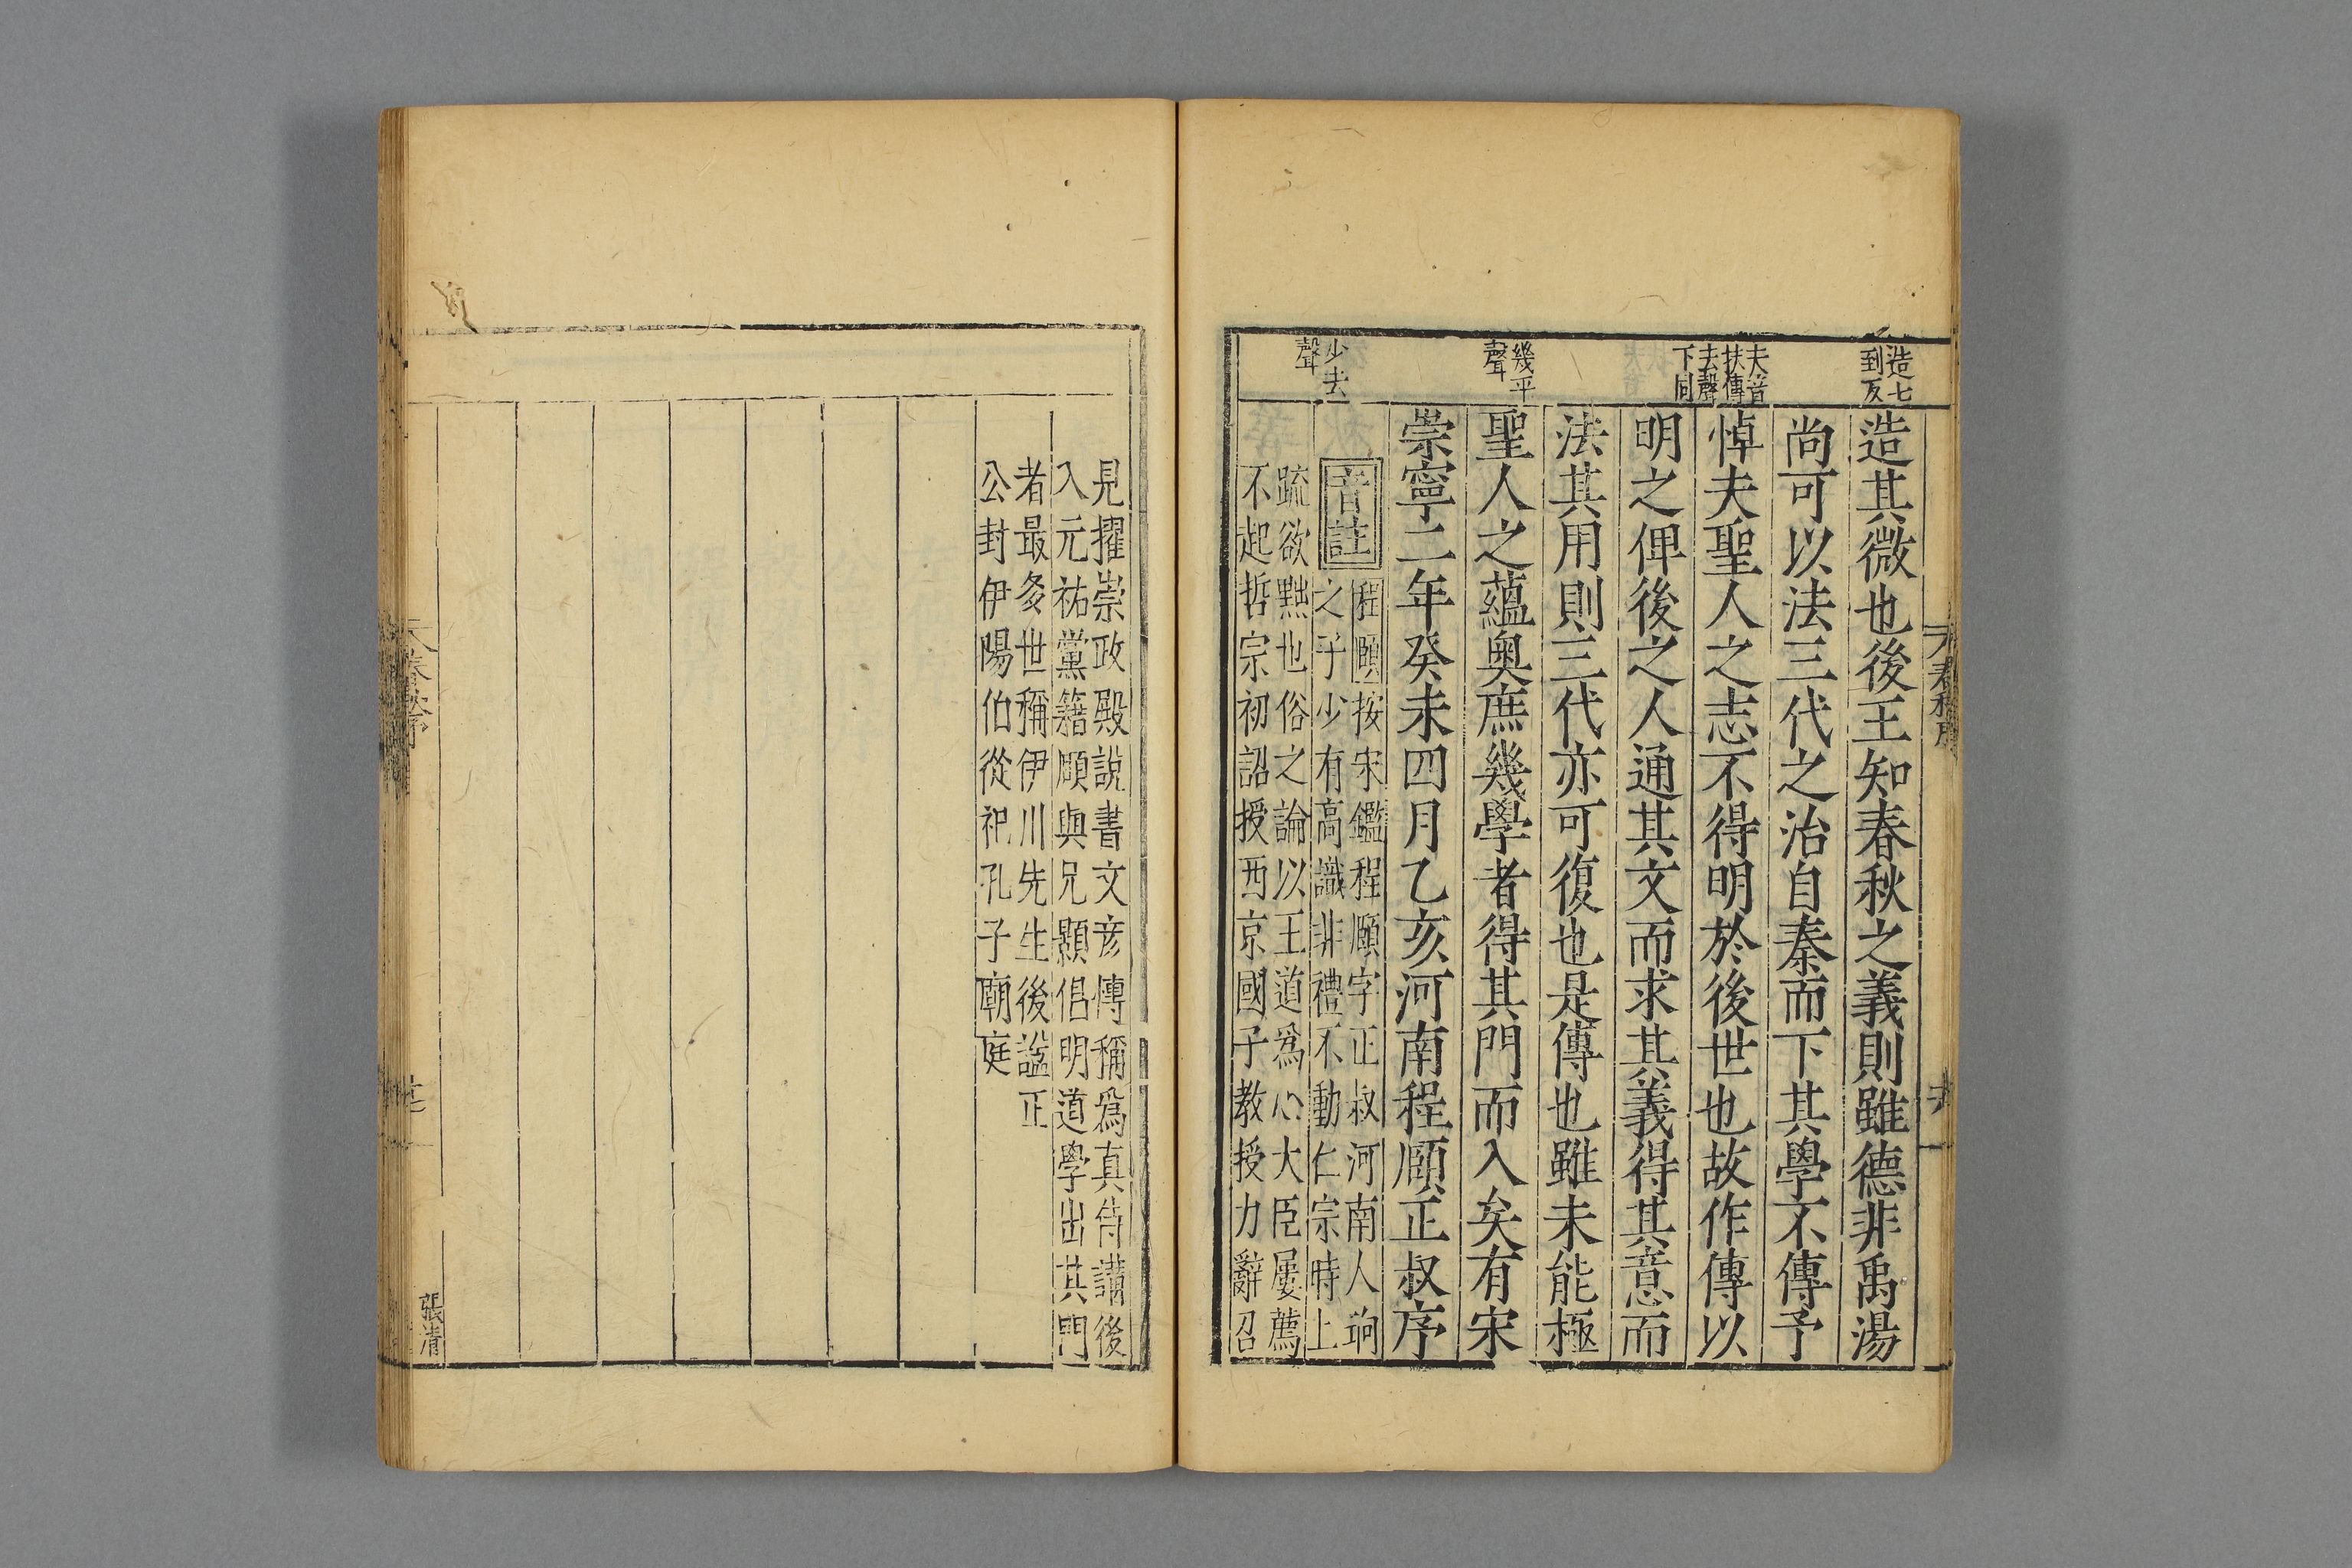 造七
到反
夫音
扶傳
去聲
下同
幾平
聲
少去
聲
造其微也後王知春秋之義則雖德非禹湯
尚可以法三代之治自秦而下其學不傳予
悼夫聖人之志不得明於後世也故作傳以
明之俾後之人通其文而求其義得其意而
法其用則三代亦可復也是傳也雖未能極
聖人之蘊奧庶幾學者得其門而入矣有宋
崇寧二年癸未四月乙亥河南程頤正叔序
音註
程頤按宋鑑程頤字正叔河南人珦
之子少有高識非禮不動仁宗時上
疏欲黜世俗之論以王道爲心大臣屢薦
不起哲宗初詔授西京國子教授力辭召
見擢崇政殿說書文彥傳稱爲真侍講後
入元祐黨籍頤與兄顥倡明道學出其門
者最多世稱伊川先生後謚正
公封伊陽伯從祀孔子廟庭
春秋序
張清